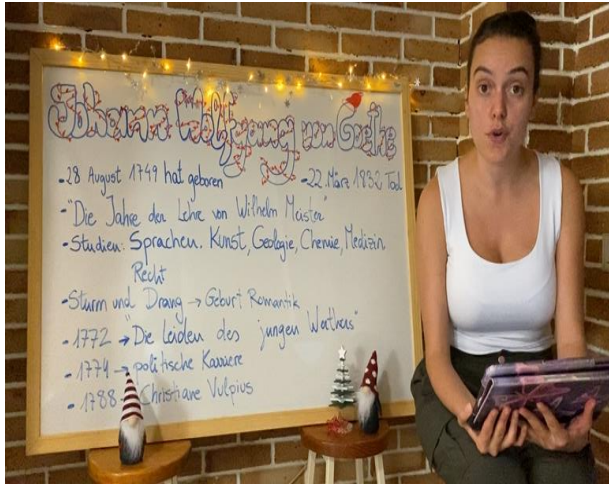 Johann Wolfgang von Goethe
-28 August 1749 hat geboren
-22. März 1832 Tod
-"Die Jahre der Lehre von Wilhelm Meister"
-Studien: Sprachen. Kunst, Geologie, Chemie, Medizin
Recht
-Sturm und Drang → Geburt Romantik
-1772 → "Die Leiden des jungen Werthers"
-1774 → politische Karriere
-1788 → Christiane Vulpius